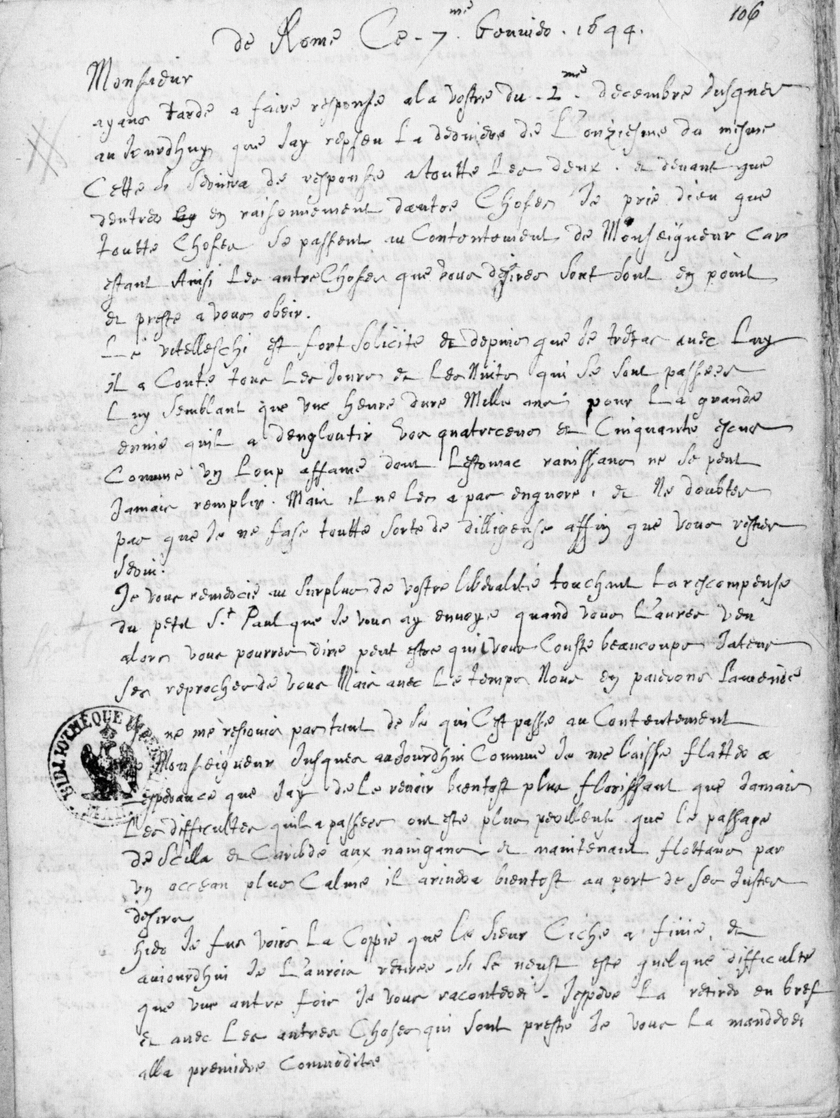 106
de Rome Ce 7me Genvier 1644.
Monsieur
ayans tarde a faire response ala vostre du 2me decembre Jusques
au Jourdhuy que Jay repseu La derniere de L'onziesme du mesme
Cette si servira de response atoutte Les deux. et devant que
dentrer en raisonnement dautre Choses Je prie dieu que
toutte Choses se passent au Contentement de Monseigneur car
estant Ainsi Les autre Choses que vous desires sont tout en point
et preste a vous obeir.
Le vitelleschi est fort solicite et depuis que Je tretac avec Luy
il a Conte tous Les Jours et Les Nuits qui se sont passees
Luy semblant que une heure dure Mille ans pour La grande
envie quil a dengloutir vos quatrecens et Cinquante escus
Comme un Loup affame dont Lestomac ravissans ne se peut
Jamais remplir. Mais il ne Les a pas enquore, et Ne doubtes
pas que Je ne fase toutte sorte de dilligense affin que vous resties
servi.
Je vous remercie au surplus de vostre liberalité touchant La rescompense
du petit St Paul que Je vous ay envoye quand vous L'aures veu
alors vous pourres dire peut estre qu'il vous Couste beaucoups Jateus
ses reproches de vous Mais avec Le temps Nous en paierons Lamende
Je ne me resiouis pas tant de se qui C'est passe au Contentement
de Monseigneur Jusques aujourdhui Comme Je me laisse flatter a
esperance que Jay de Le revoir bientost plus florissant que Jamais
Les difficultes quil a passees ont este plus perilleus que le passage
de Scilla et Caribde aux navigans et maintenant flottans par
un occean plus Calme il arivera bientost au port de ses Justes
desirs
hier Je fus voire La Coppie que le sieur Ciche a finie, et
aujourdhui Je L'aurois retiree si se neust este quelque difficulte
que une autre fois Je vous raconterei. Jespere La retirer en bref
et avec Les autres Choses qui sont preste Je vous La manderei
alla premiere Commodite
BIBLIOTHÈQUE